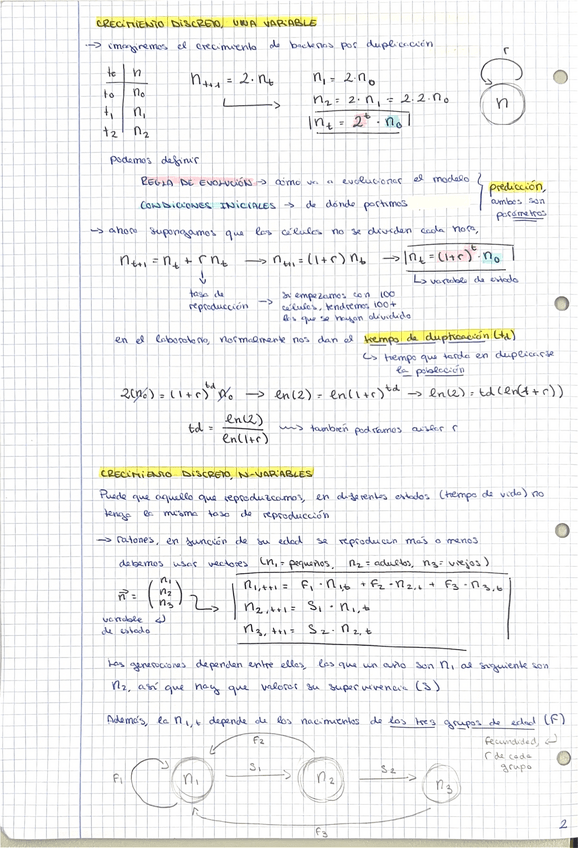 CRECIMIENTO DISCRETO, UNA VARIABLE
→ imaginemos el crecimiento de bacterias por duplicación
t₀ | n
t₀ | n₀
t₁ | n₁
t₂ | n₂
nₜ₊₁ = 2·nₜ
n₁ = 2·n₀
n₂ = 2·n₁ = 2·2·n₀
nₜ = 2ᵗ · n₀
r
n
podemos definir
REGLA DE EVOLUCIÓN → cómo va a evolucionar el modelo
CONDICIONES INICIALES → de dónde partimos
predicción,
ambos son
parámetros
→ ahora supongamos que las células no se dividen cada hora,
nₜ₊₁ = nₜ + r nₜ → nₜ₊₁ = (1+r) nₜ → nₜ = (1+r)ᵗ · n₀
↳ variable de estado
tasa de
reproducción → si empezamos con 100
células, tendremos 100+
las que se hayan dividido
en el laboratorio, normalmente nos dan el tiempo de duplicación (td)
↳ tiempo que tarda en duplicarse
la población
2(n₀) = (1+r)^td n₀ → ln(2) = ln(1+r)^td → ln(2) = td(ln(1+r))
td = ln(2) / ln(1+r) → también podríamos aislar r
CRECIMIENTO DISCRETO, N-VARIABLES
Puede que aquello que reproduzcamos, en diferentes estados (tiempo de vida) no
tenga la misma tasa de reproducción
→ ratones, en función de su edad se reproducen más o menos
debemos usar vectores (n₁ = pequeños, n₂ = adultos, n₃ = viejos)
n⃗ = (n₁ n₂ n₃)
variable
de estado
n₁,ₜ₊₁ = F₁·n₁,ₜ + F₂·n₂,ₜ + F₃·n₃,ₜ
n₂,ₜ₊₁ = S₁·n₁,ₜ
n₃,ₜ₊₁ = S₂·n₂,ₜ
Las generaciones dependen entre ellas, las que un año son n₁ al siguiente son
n₂, así que hay que valorar su supervivencia (S)
Además, la n₁,ₜ depende de los nacimientos de los tres grupos de edad (F)
fecundidad,
r de cada
grupo
F₂
F₁
n₁
S₁
n₂
S₂
n₃
F₃
2